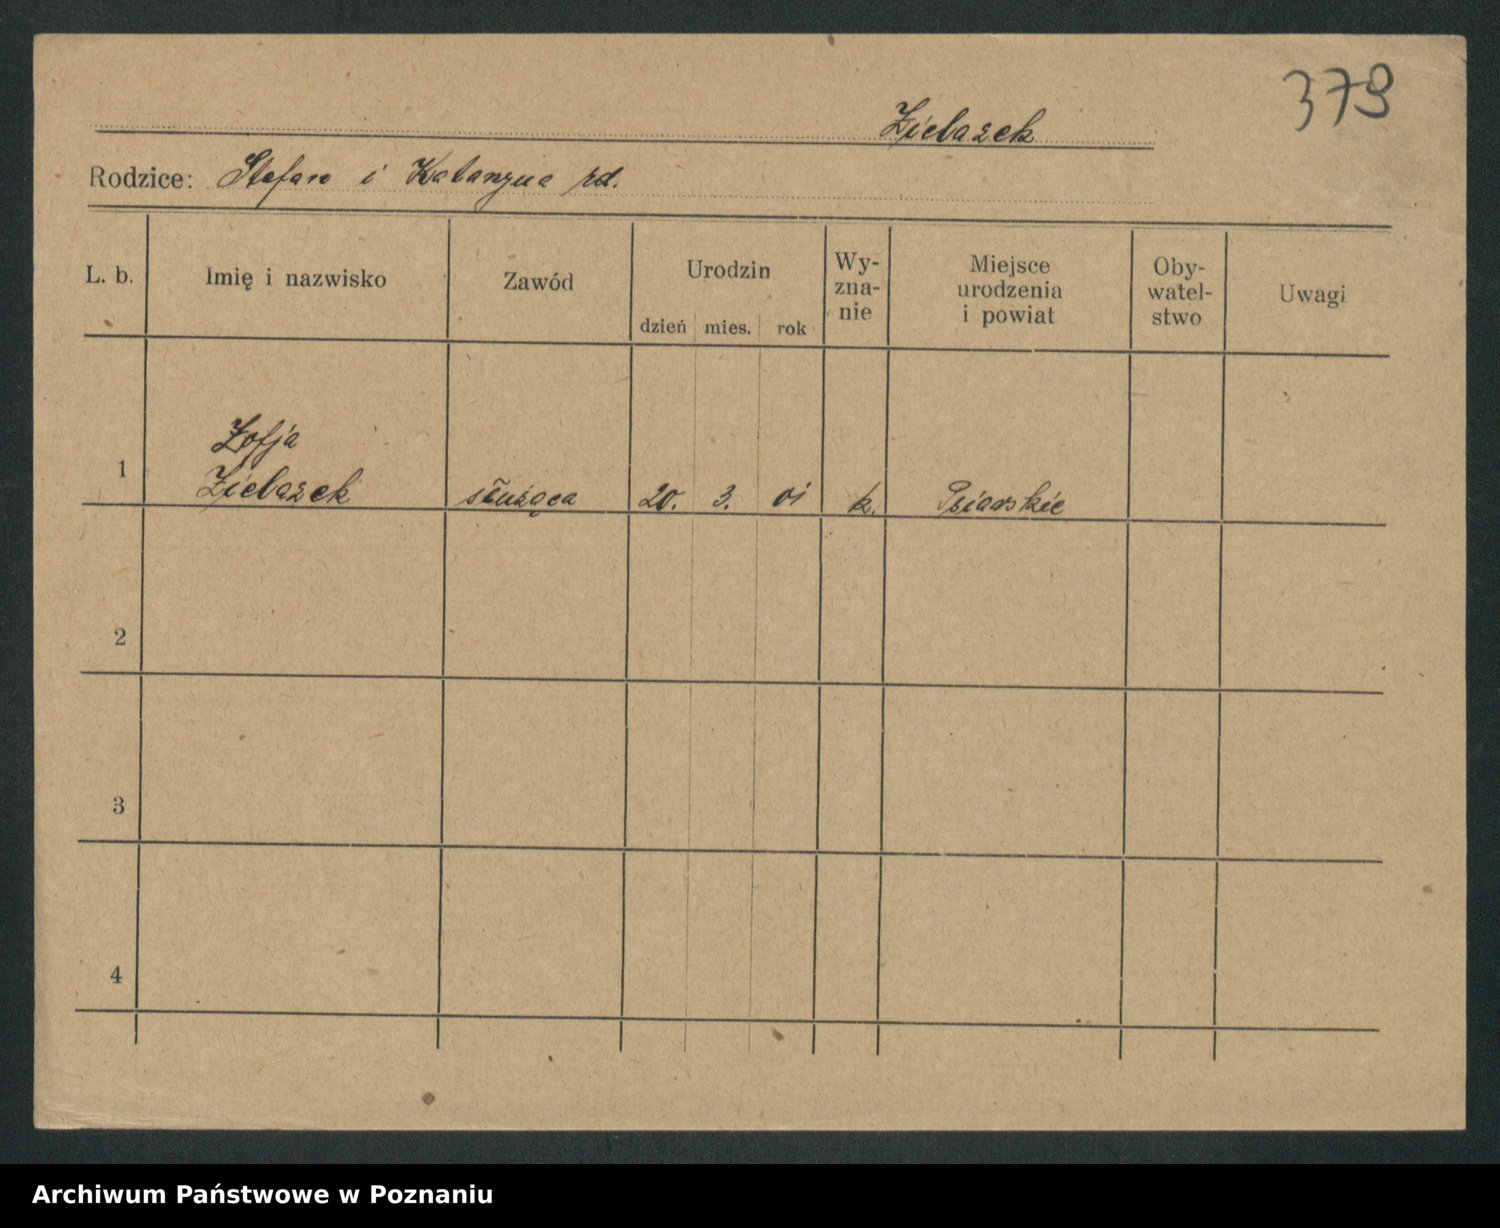 379
Zielazek
Rodzice: Stefan i Katarzyna zd.
L. b. Imię i nazwisko Zawód Urodzin dzień mies. rok Wy-
zna-
nie Miejsce
urodzenia
i powiat Oby-
watel-
stwo Uwagi
1 Zofja
Zielazek służąca 20. 3. 01 k. Psiarskie
2
3
4
Archiwum Państwowe w Poznaniu